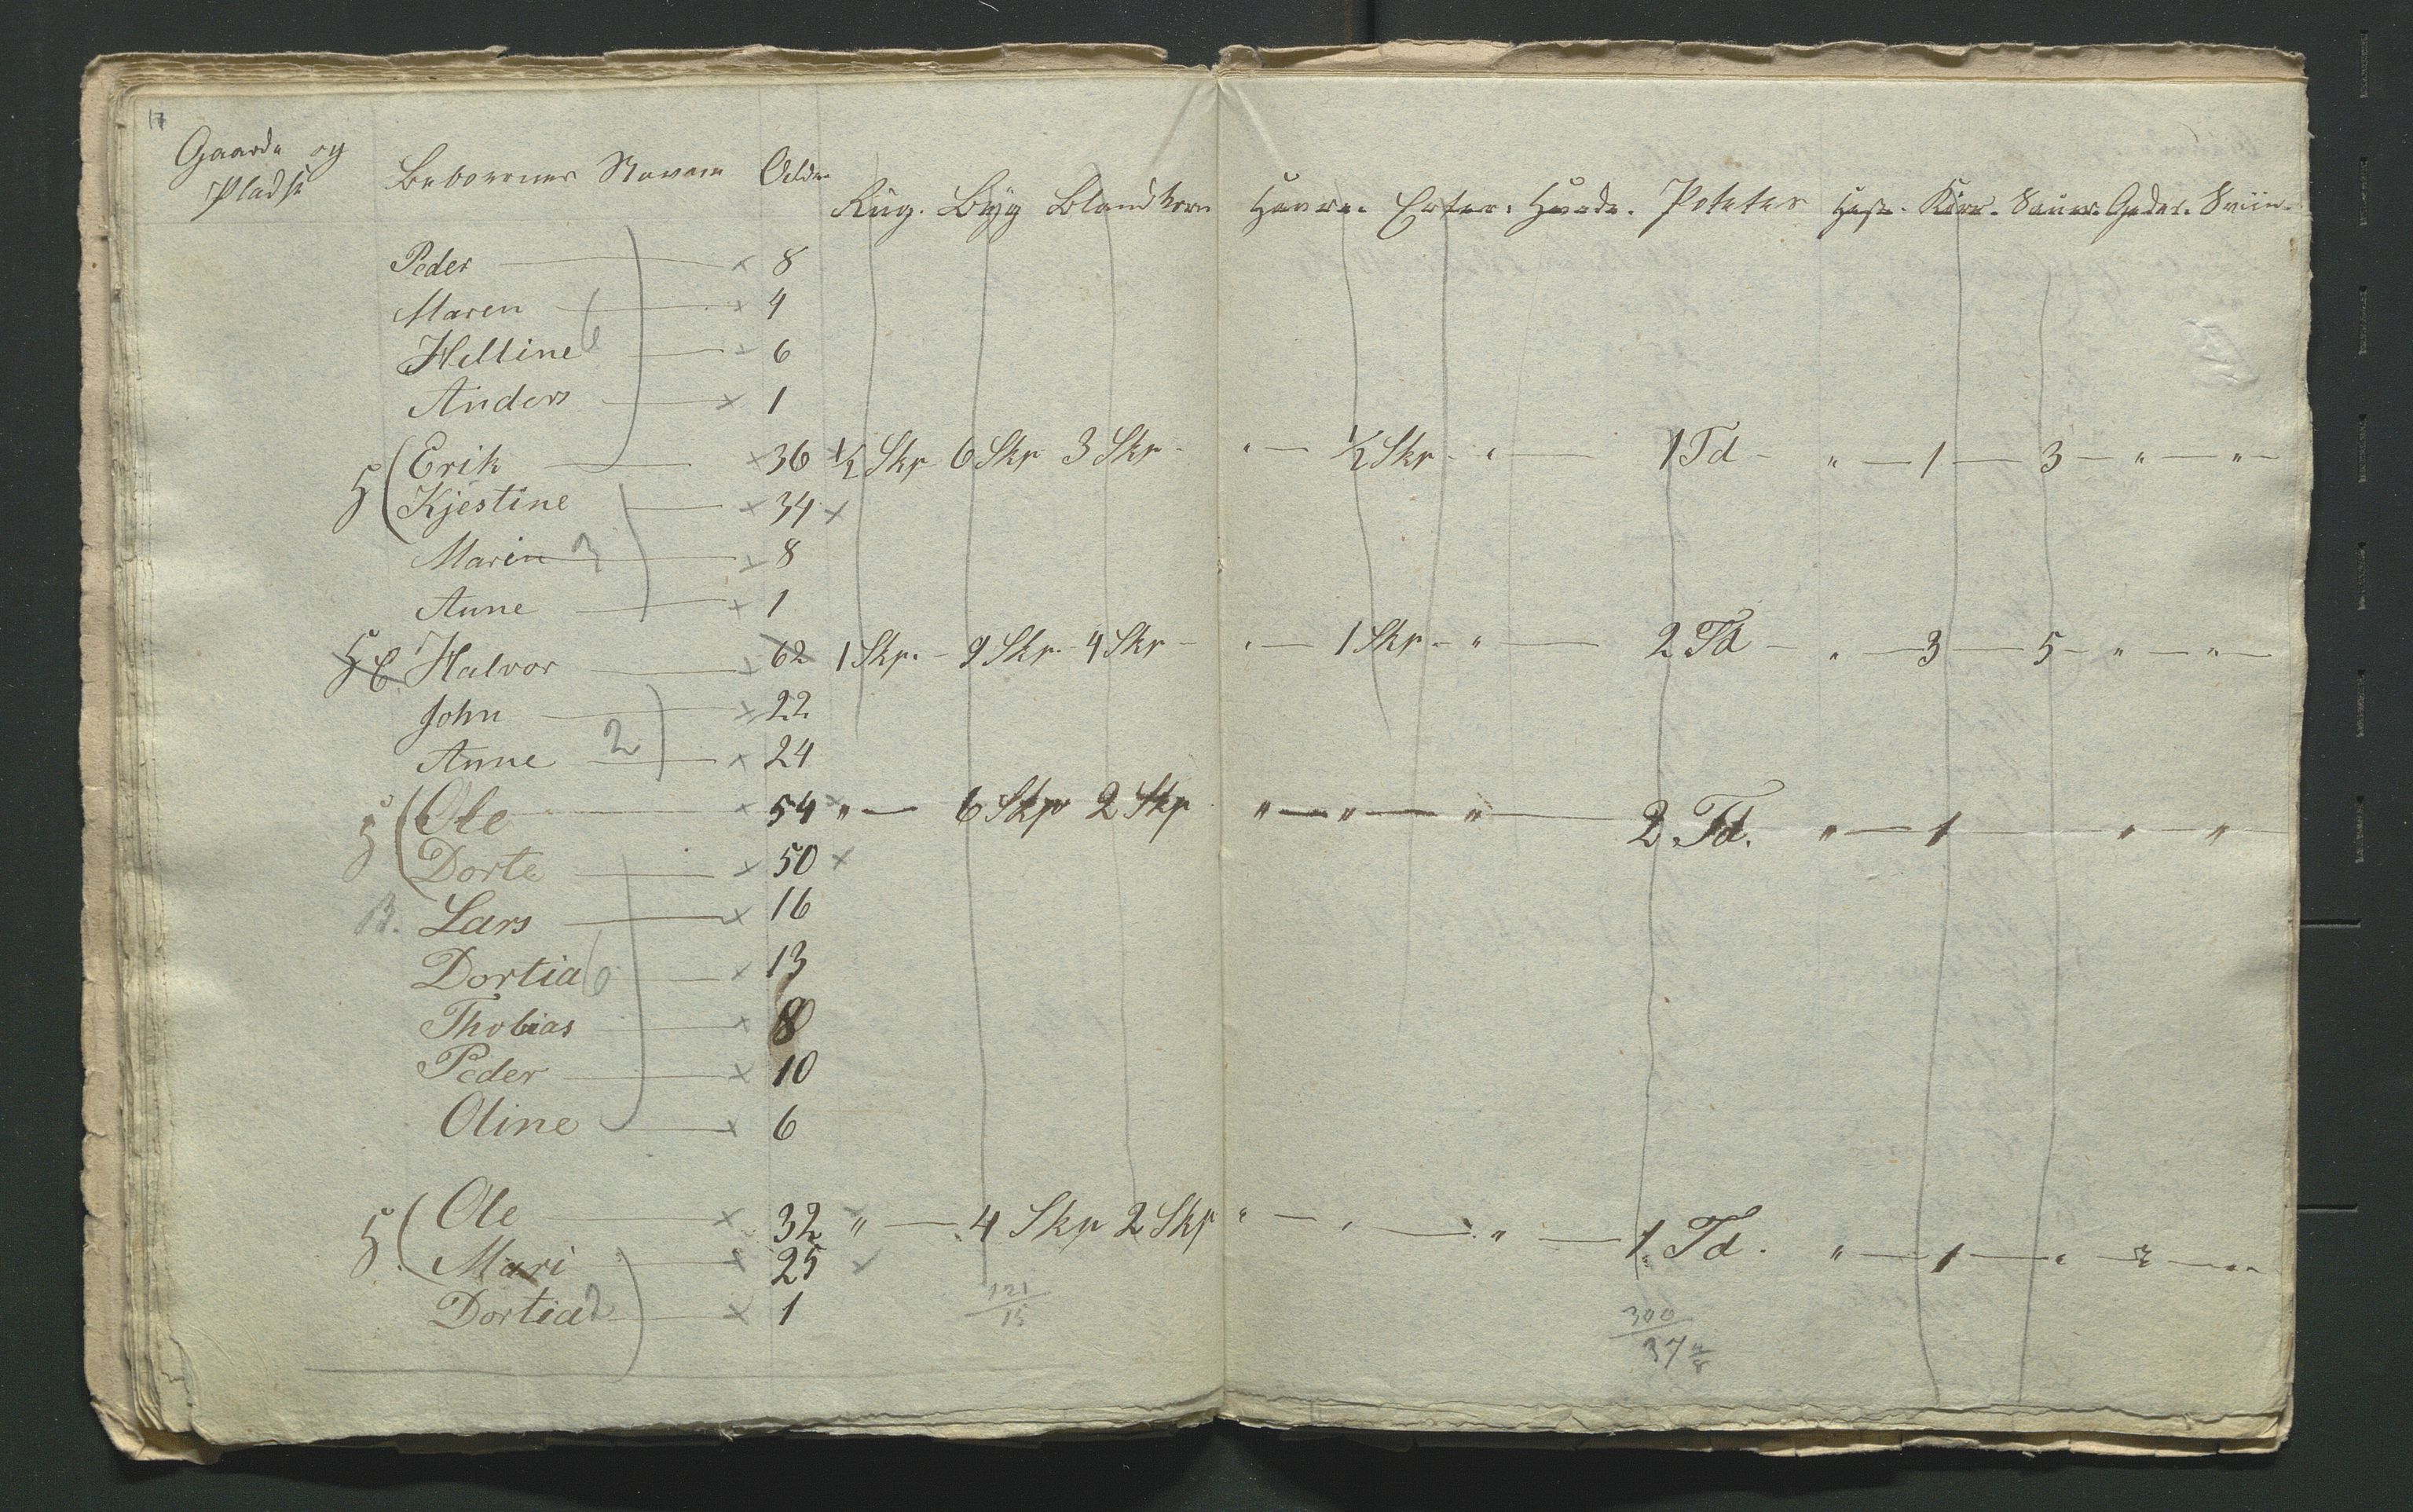 17
Gaarde og Pladse Beboernes Navne Alder Rug. Byg Blandkorn Havre. Erter. Hvede. Poteter Hest. Kiør. Sauer. Geder. Sviin.
Peder — x 8
Maren — x 4
Helline 6 — x 6
Anders — x 1
Erik — x 36 ½ Skp 6 Skp 3 Skp - " — ½ Skp - " — 1 Td - " — 1 — 3 — " — " —
Kjestine — x 34 x
Marin 3 — x 8
Anne — x 1
Halvor — x 62 1 Skp. - 9 Skp. 4 Skp - " — 1 Skp - " — 2 Td - " — 3 — 5 - " — " —
John — x 22
Anne 2 — x 24
Ole — x 54 x " — 6 Skp 2 Skp " — " — " — 2 Td. " — 1 — " — "
Dorte — x 50 x
Lars — x 16
Dortia 6 — x 13
Thobias — x 8
Peder — x 10
Oline — x 6
Ole — x 32 " — 4 Skp 2 Skp " — " — " — 1. Td. " — 1 — " — " — "
Mari — x 25 x
Dortia 2 — x 1
121
15
300
37 4/8